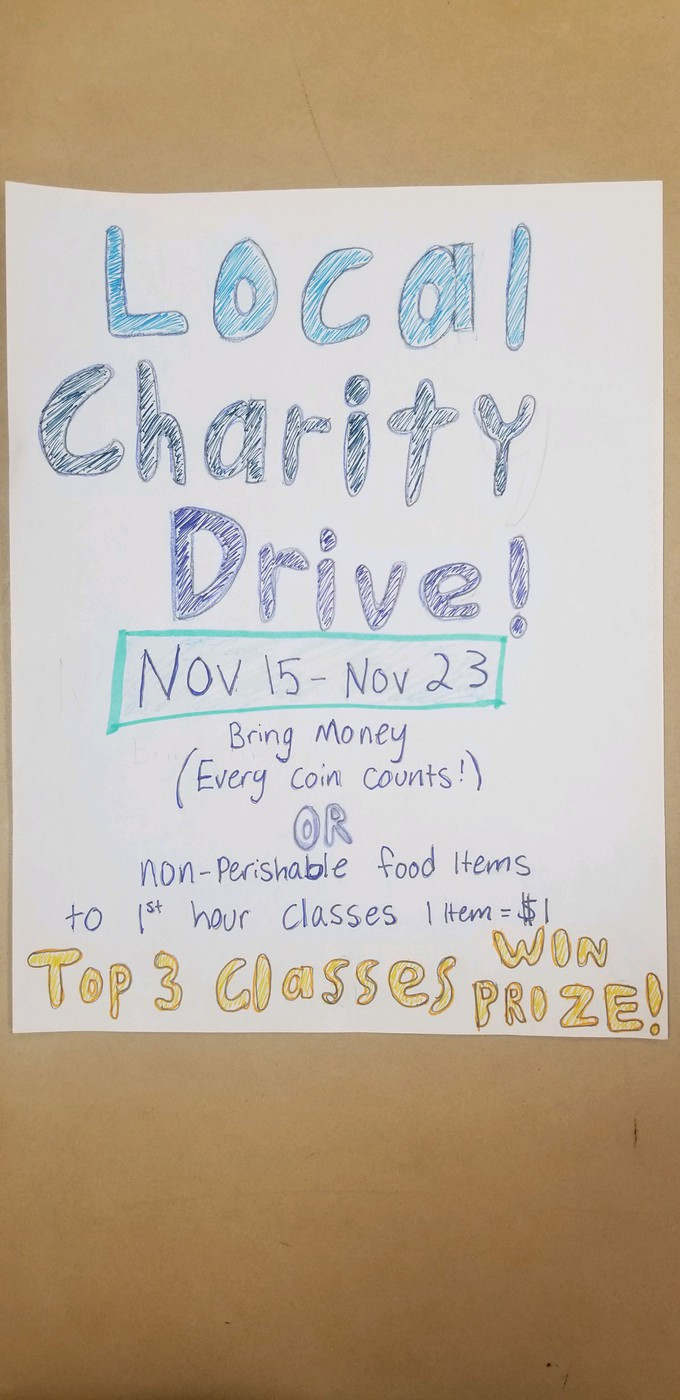 Local
Charity
Drive!
Nov 15 - Nov 23
Bring Money
(Every coin counts!)
OR
non-Perishable food Items
to 1st hour classes 1 Item = $1
Top 3 Classes WIN
PRIZE!